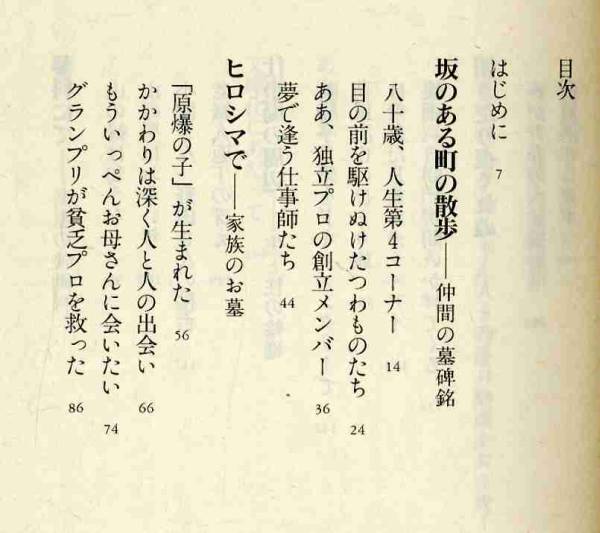 目次
はじめに 7
坂のある町の散歩——仲間の墓碑銘
八十歳、人生第4コーナー 14
目の前を駆けぬけたつわものたち 24
ああ、独立プロの創立メンバー 36
夢で逢う仕事師たち 44
ヒロシマで——家族のお墓
「原爆の子」が生まれた 56
かかわりは深く人と人の出会い 66
もういっぺんお母さんに会いたい 74
グランプリが貧乏プロを救った 86